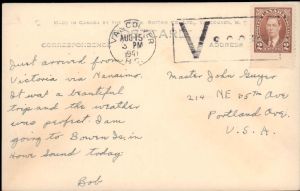 MADE IN CANADA BY
VANCOUVER
AUG 15
3 PM
1941
B.C.
V
CORRESPONDENCE
ADDRESS
2
Just arrived from
Victoria via Nanaimo.
It was a beautiful
trip and the weather
was perfect. I am
going to Bowen Is. in
Howe Sound today.
Bob
Master John
214 NE
Portland Ore.
U.S.A.